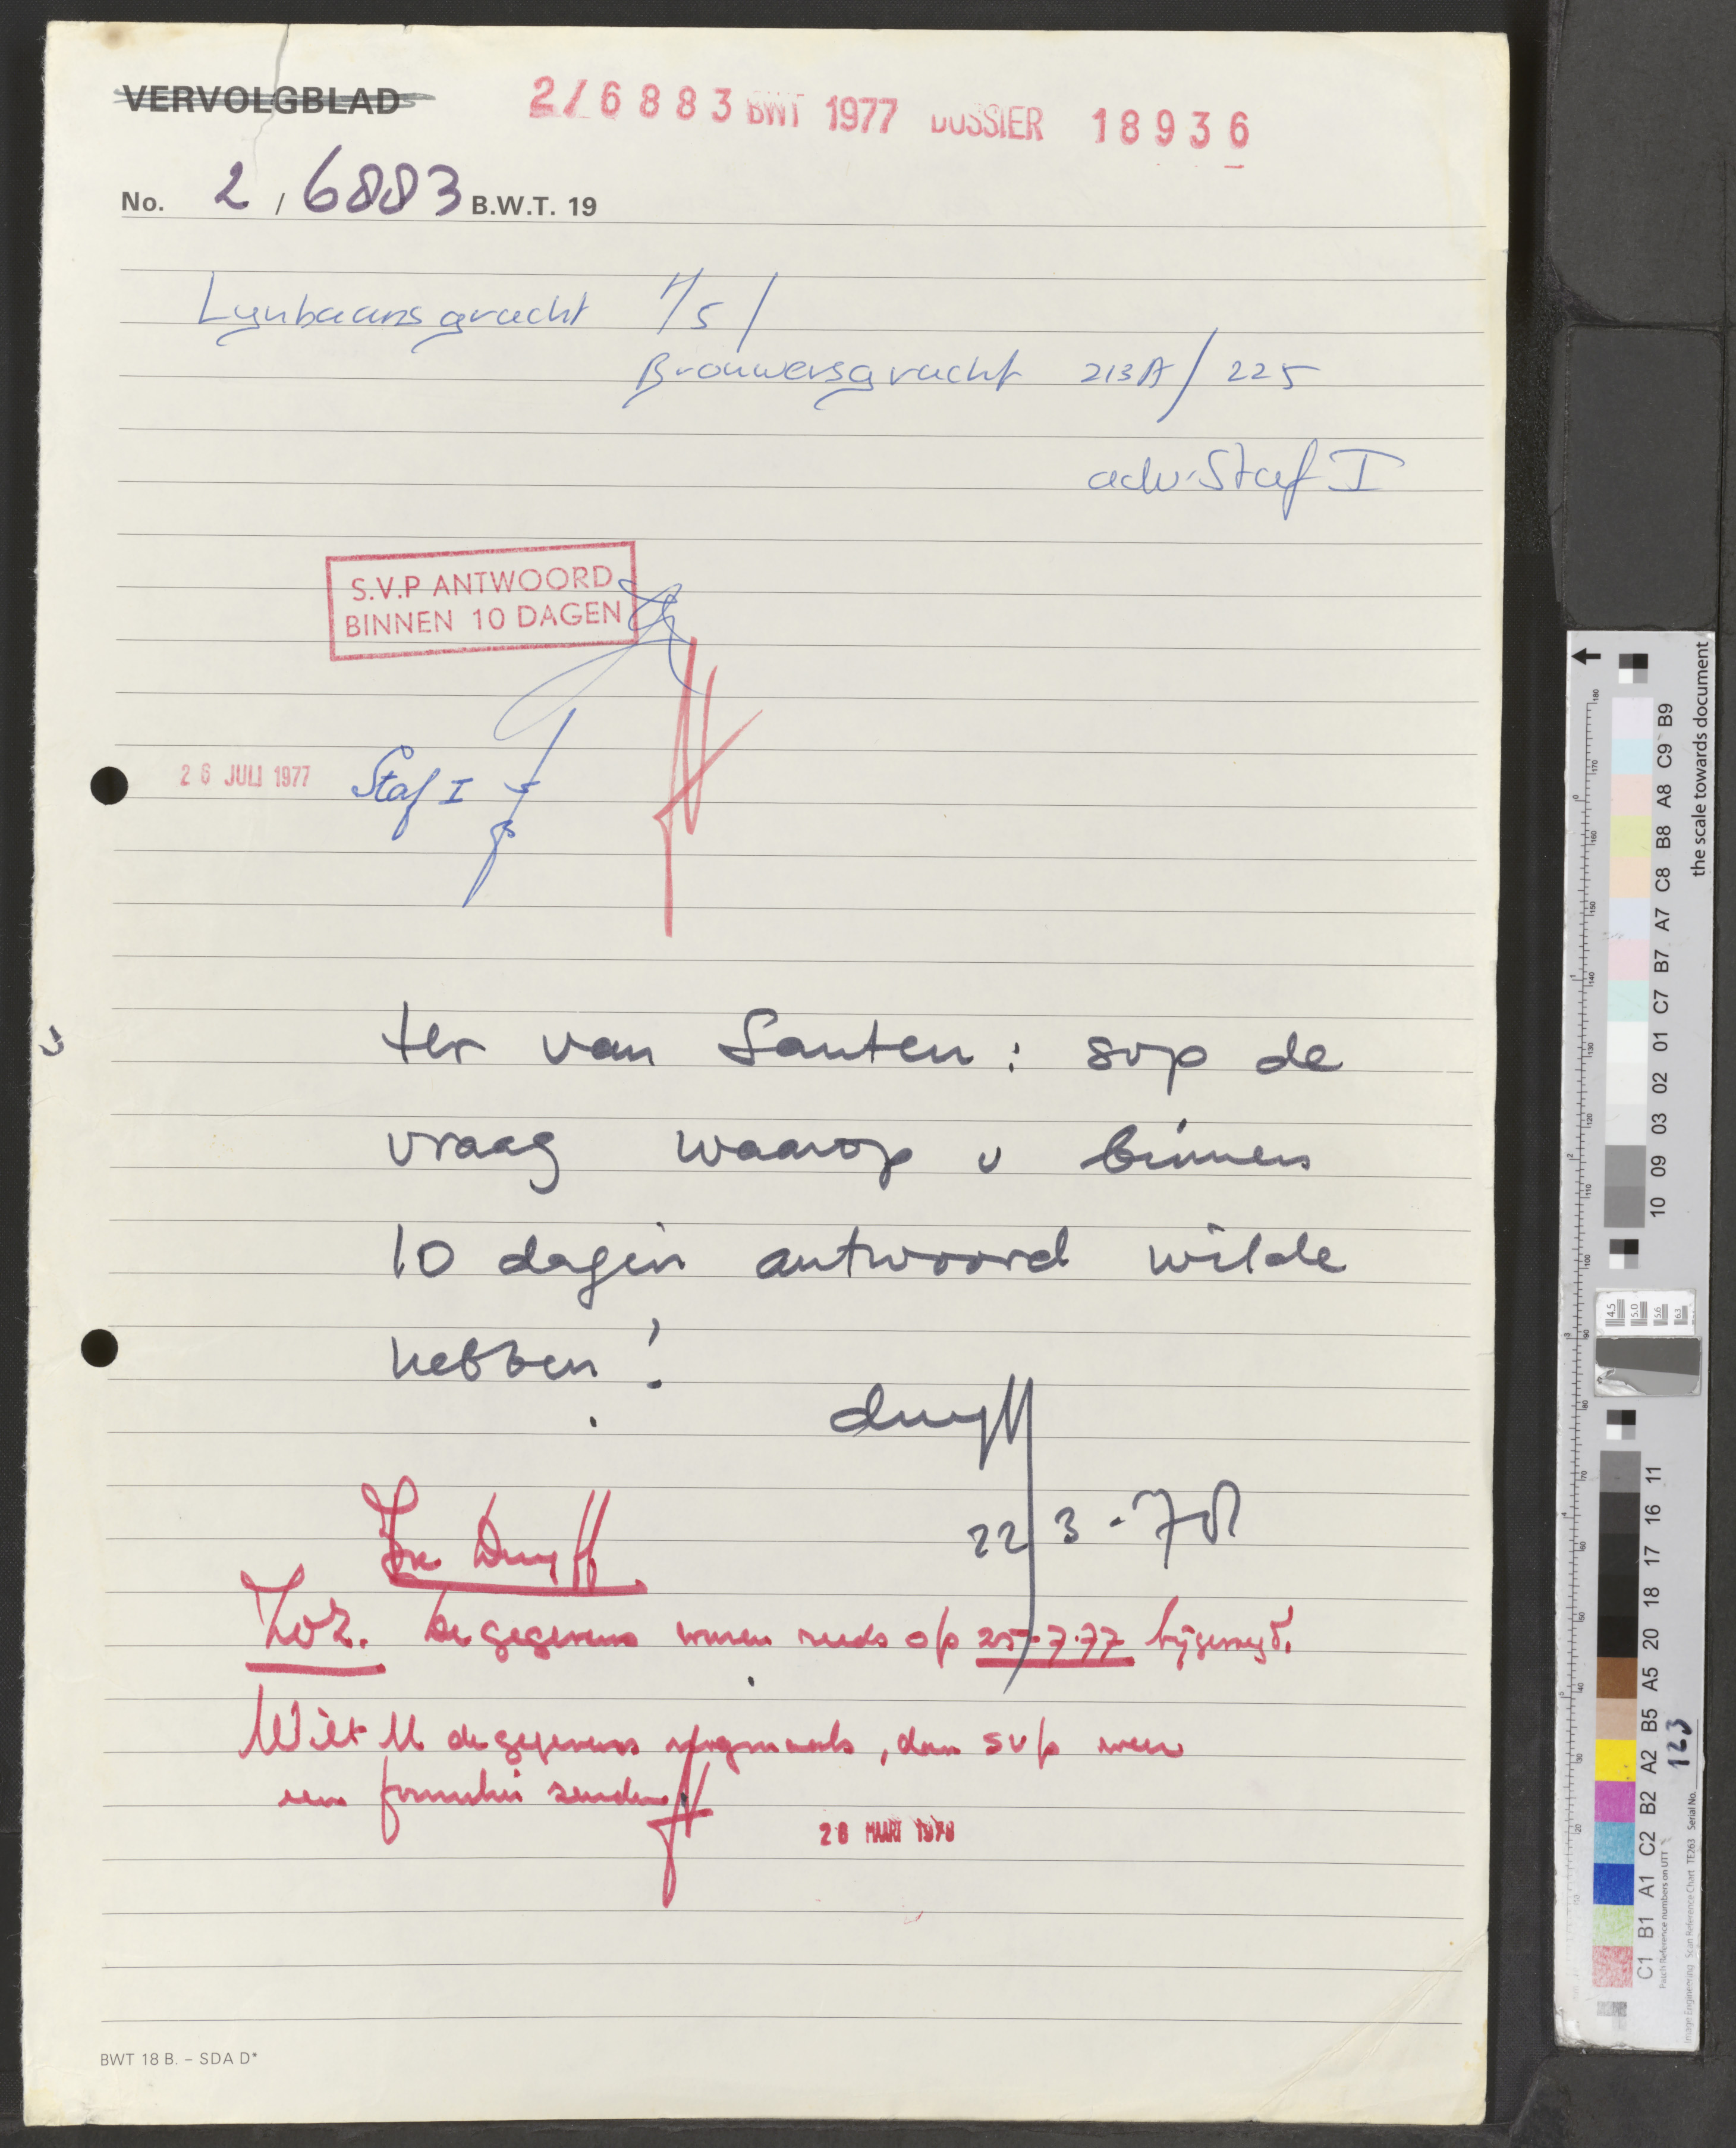 VERVOLGBLAD
2/6883 BWT 1977 DOSSIER 18936
No. 2 / 6883 B.W.T. 19
Lynbaansgracht 1/5/
Brouwersgracht 213A/225
adv. Staf I
S.V.P ANTWOORD
BINNEN 10 DAGEN
26 JULI 1977 Staf I
Hr van Santen: svp de
vraag waarop u binnen
10 dagen antwoord wilde
hebben!
duyff
22/3-78
Duyff
de gegevens waren reeds op 25-7-77 bijgevoegd.
Wilt U de gegevens nogmaals, dan svp weer
een formulier zenden
28 MAART 1978
BWT 18 B. – SDA D*
the scale towards document
B9 C9 A8 B8 C8 A7 B7 C7 01 02 03 09 10
11 16 17 18 20 A5 B5 A2 B2 C2 A1 B1 C1
Image Engineering Scan Reference Chart TE263 Serial No. 123
Patch Reference numbers on UTT